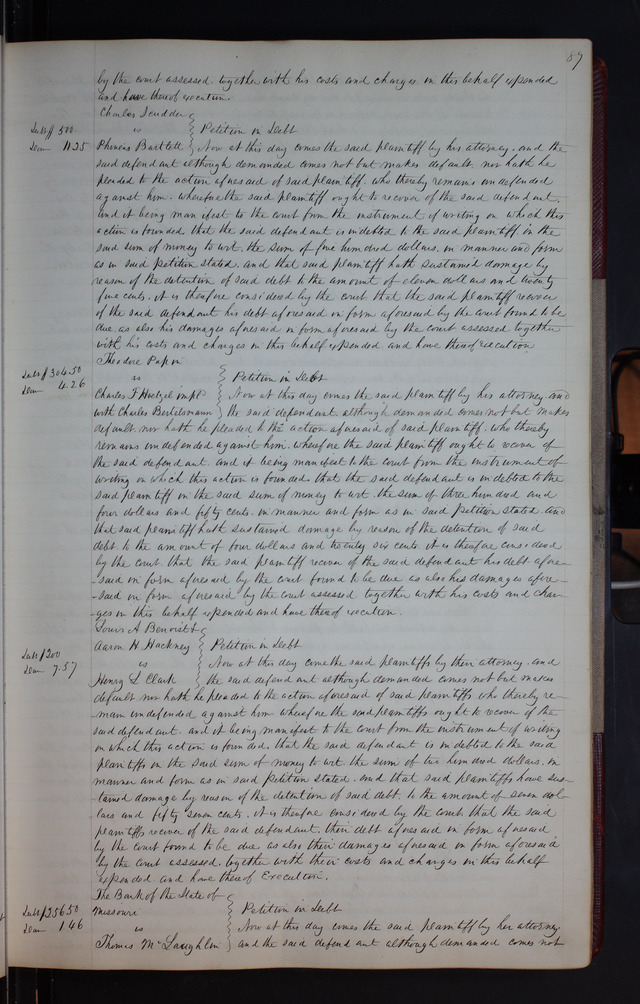 87
by the court assessed. together with his costs and charges in this behalf expended
and have thereof execution.
Charles Scudder
Debt $ 500
vs Petition in Debt
Dam 11.25
Phineas Bartlett Now at this day comes the said plaintiff by his attorney. and the
said defendant although demanded comes not but makes default. nor hath he
pleaded to the action aforesaid of said plaintiff. who thereby remains undefended
against him. wherefore the said plaintiff ought to recover of the said defendant.
and it being manifest to the court from the instrument of writing on which this
action is founded that the said defendant is indebted to the said plaintiff in the
said sum of money to wit. the sum of five hundred dollars. in manner and form
as in said Petition stated. and that said plaintiff hath sustained damage by
reason of the detention of said debt to the amount of eleven dollars and twenty
five cents. it is therefore considered by the court that the said plaintiff recover
of the said defendant his debt aforesaid in form aforesaid by the court found to be
due. as also his damages aforesaid in form aforesaid by the court assessed. together
with his costs and charges in this behalf expended and have thereof execution
Theodore Papin
Debt $ 304.50
vs Petition in Debt
Dam 4.26
Charles F Hustzel impld Now at this day comes the said plaintiff by his attorney. and
with Charles Bertelsmann the said defendant although demanded comes not but makes
default. nor hath he pleaded to the action aforesaid of said plaintiff. who thereby
remains undefended against him. wherefore the said plaintiff ought to recover of
the said defendant. and it being manifest to the court from the instrument of
writing on which this action is founded that the said defendant is indebted to the
said plaintiff in the said sum of money to wit. the sum of three hundred and
four dollars and fifty cents. in manner and form as in said Petition stated. and
that said plaintiff hath sustained damage by reason of the detention of said
debt to the amount of four dollars and twenty six cents it is therefore considered
by the court that the said plaintiff recover of the said defendant his debt afore-
-said in form aforesaid by the court found to be due as also his damages afore-
-said in form aforesaid by the court assessed together with his costs and char-
-ges in this behalf expended and have thereof execution.
Louis A Benoist &
Debt $ 200
Aaron H Hackney Petition in Debt
Dam 7.57
vs Now at this day come the said plaintiffs by their attorney. and
Henry L Clark the said defendant although demanded comes not but makes
default nor hath he pleaded to the action aforesaid of said plaintiffs who thereby re-
main undefended against him wherefore the said plaintiffs ought to recover of the
said defendant. and it being manifest to the court from the instrument of writing
on which this action is founded. that the said defendant is indebted to the said
plaintiffs in the said sum of money to wit the sum of two hundred dollars. in
manner and form as in said Petition stated. and that said plaintiffs have sus-
-tained damage by reason of the detention of said debt. to the amount of seven dol-
-lars and fifty seven cents. it is therefore considered by the court that the said
plaintiffs recover of the said defendant. their debt aforesaid in form aforesaid
by the court found to be due. as also their damages aforesaid in form aforesaid
by the court assessed. together with their costs and charges in this behalf
expended and have thereof Execution.
The Bank of the State of
Debt $ 356.50
Missouri Petition in Debt
Dam 1.46
vs Now at this day comes the said plaintiff by her attorney.
Thomas McLaughlin and the said defendant although demanded comes not